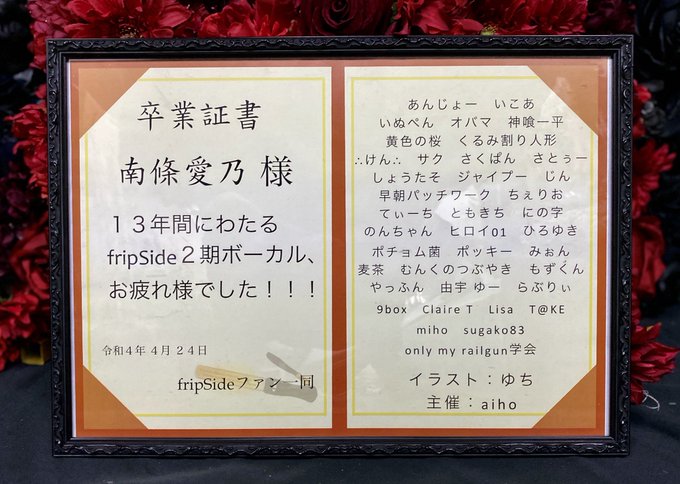 卒業証書
南條愛乃 様
１３年間にわたる
fripSide２期ボーカル、
お疲れ様でした！！！
令和４年４月２４日
fripSideファン一同
あんじょー いこあ
いぬぺん オバマ 神喰一平
黄色の桜 くるみ割り人形
∴けん∴ サク さくぱん さとぅー
しょうたそ ジャイプー じん
早朝パッチワーク ちぇりお
てぃーち ともきち にの字
のんちゃん ヒロイ01 ひろゆき
ポチョム菌 ポッキー みぉん
麦茶 むんくのつぶやき もずくん
やっふん 由宇 ゆー らぶりぃ
9box Claire T Lisa T@KE
miho sugako83
only my railgun学会
イラスト：ゆち
主催：aiho